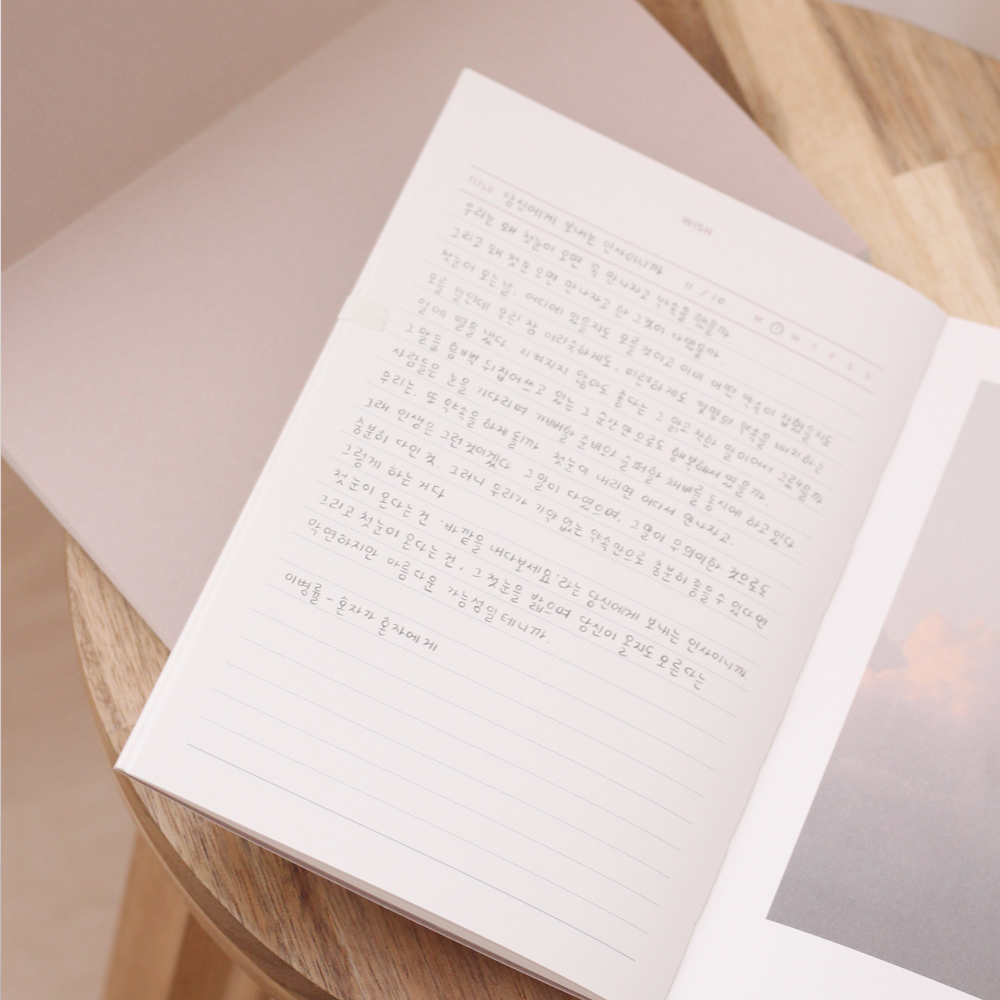 WISH
TITLE 당신에게 보내는 인사이니까
11 / 10 M T W T F S S
우리는 왜 첫눈이 오면 꼭 만나자고 약속을 했을까
그리고 왜 첫눈 오면 만나자고 한 그것이 다였을까
첫눈이 오는 날. 어디에 있을지도 모를 것이고 이미 어떤 약속이 잡혔을지도
모를 일인데 우리 참 어리숙하게도, 미련하게도 몇몇의 약속을 배치하는
일에 열을 냈다. 지켜지지 않아도 좋다는 그 맑고 착한 말이어서 그랬을까
그 말을 흠뻑 뒤집어쓰고 있는 그 순간만으로도 행복해서 였을까.
사람들은 눈을 기다리며 기뻐할 준비와 슬퍼할 채비를 동시에 하고 있다
우리는. 또 약속을 하게 될까 첫눈이 내리면 어디서 만나자고.
그래 인생은 그런 것이겠다 그 말이 다였으며, 그 말이 무의미한 것으로도
충분히 다인 것. 그러니 우리가 기약 없는 약속만으로 충분히 좋을 수 있다면
그렇게 하는 거다
첫눈이 온다는 건 '바깥을 내다보세요'라는 당신에게 보내는 인사이니까
그리고 첫눈이 온다는 건, 그 첫눈을 밟으며 당신이 올지도 모른다는
막연하지만 아름다운 가능성일테니까.
이병률 - 혼자가 혼자에게